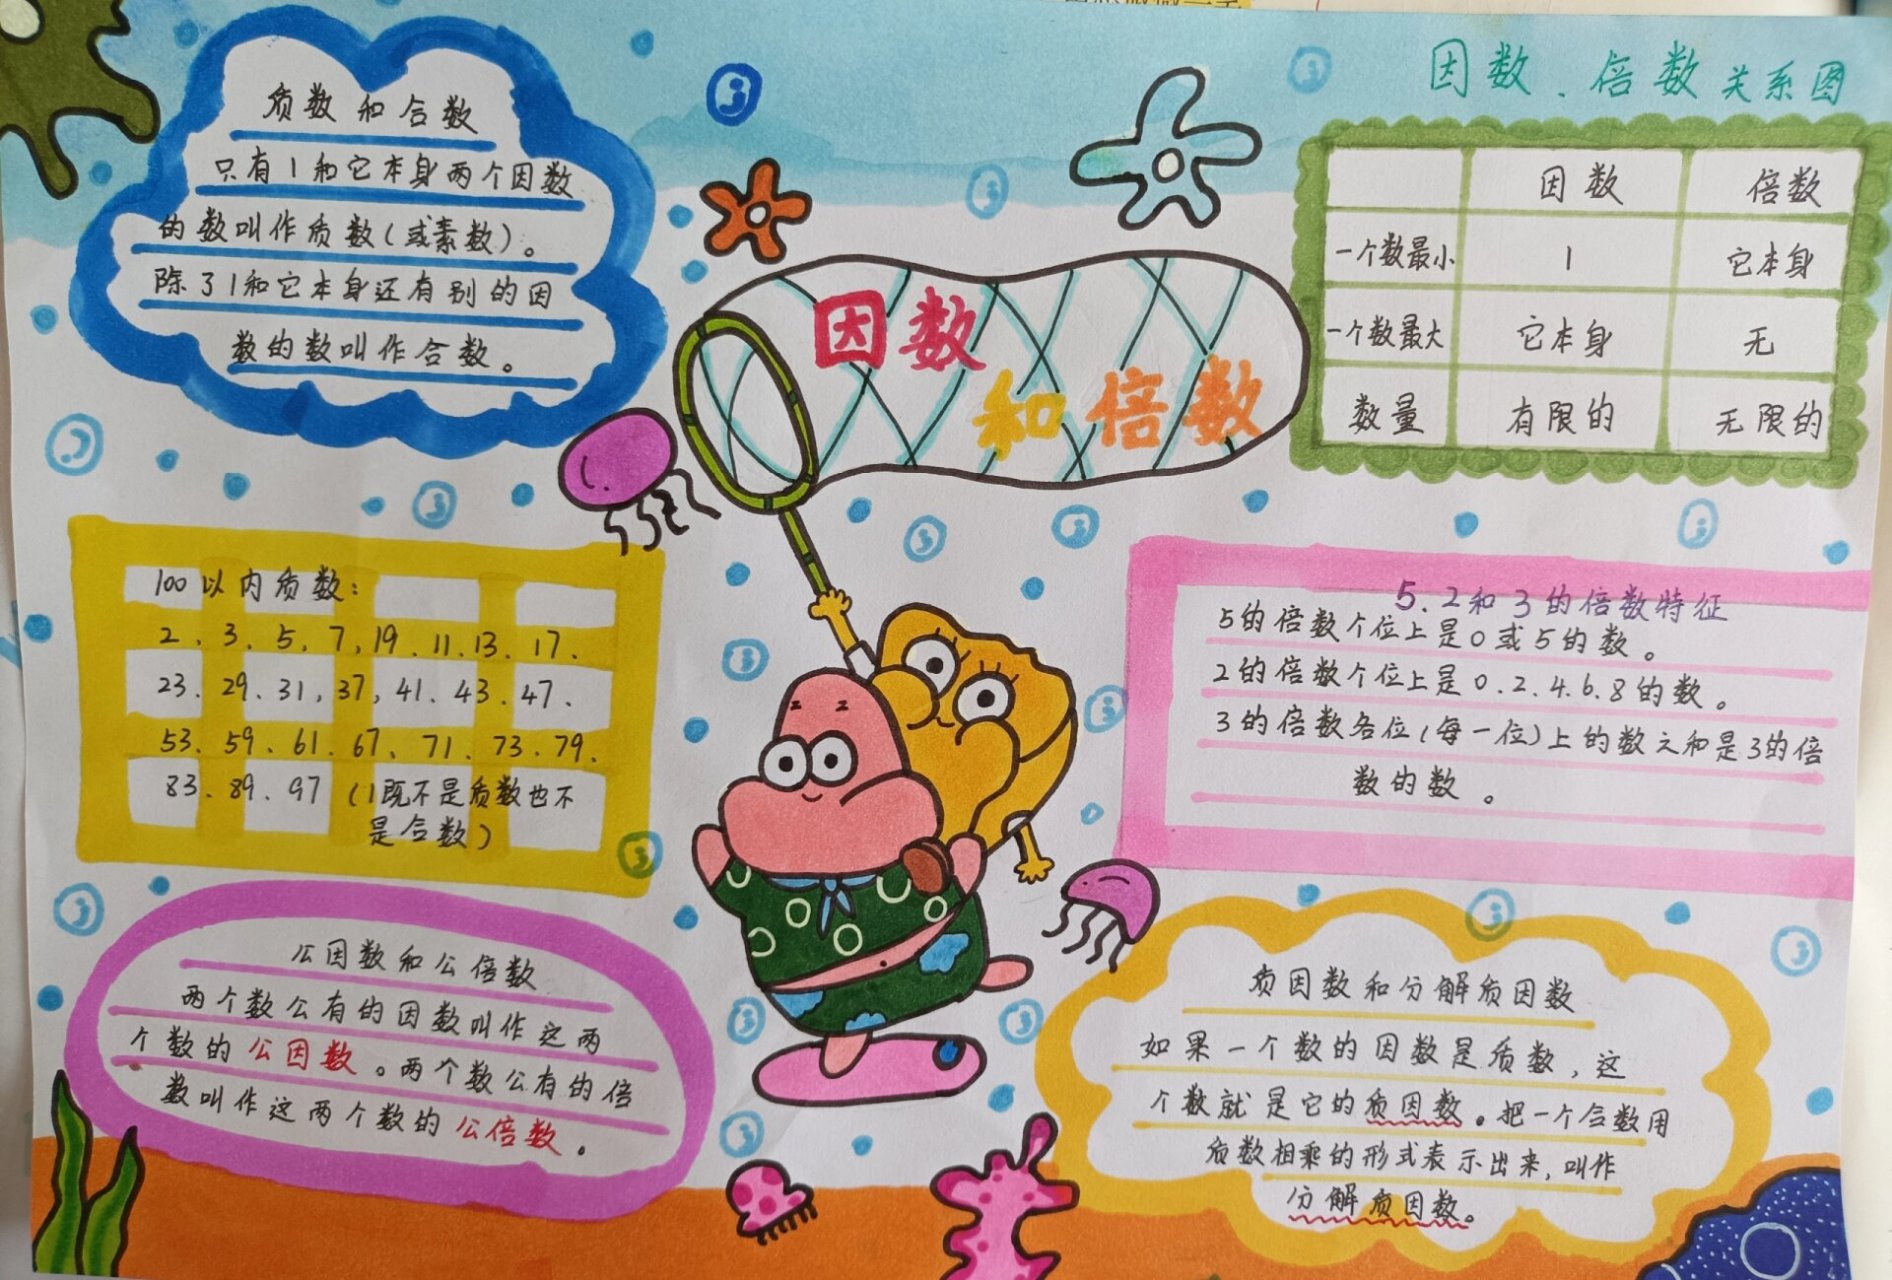 质数和合数
只有1和它本身两个因数
的数叫作质数(或素数)。
除了1和它本身还有别的因
数的数叫作合数。
因数
和倍数
因数、倍数关系图
因数 倍数
一个数最小 1 它本身
一个数最大 它本身 无
数量 有限的 无限的
100以内质数:
2、3、5、7,19、11、13、17、
23、29、31,37,41、43、47、
53、59、61、67、71、73、79、
83、89、97 (1既不是质数也不
是合数)
5、2和3的倍数特征
5的倍数个位上是0或5的数。
2的倍数个位上是0.2.4.6.8的数。
3的倍数各位(每一位)上的数之和是3的倍
数的数。
公因数和公倍数
两个数公有的因数叫作这两
个数的公因数。两个数公有的倍
数叫作这两个数的公倍数。
质因数和分解质因数
如果一个数的因数是质数,这
个数就是它的质因数。把一个合数用
质数相乘的形式表示出来,叫作
分解质因数。